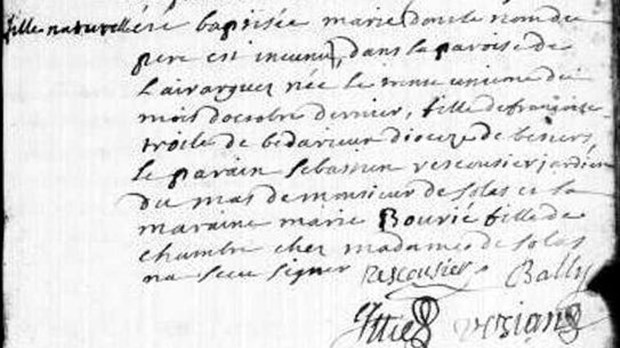 fille naturelle
a eté baptisée marie dont le nom du
pere est incunu, dans la paroise de
Lairargues née le trente unieme du
mois d'octobre dernier, fille de françoise
troile de bedarieux dioceze de besiers,
le parain sebastien rescousier jardinier
du mas de monsieur de solas et la
maraine marie Bourié fille de
chambre chez madame de solas
na sceu signer rescousier Bally